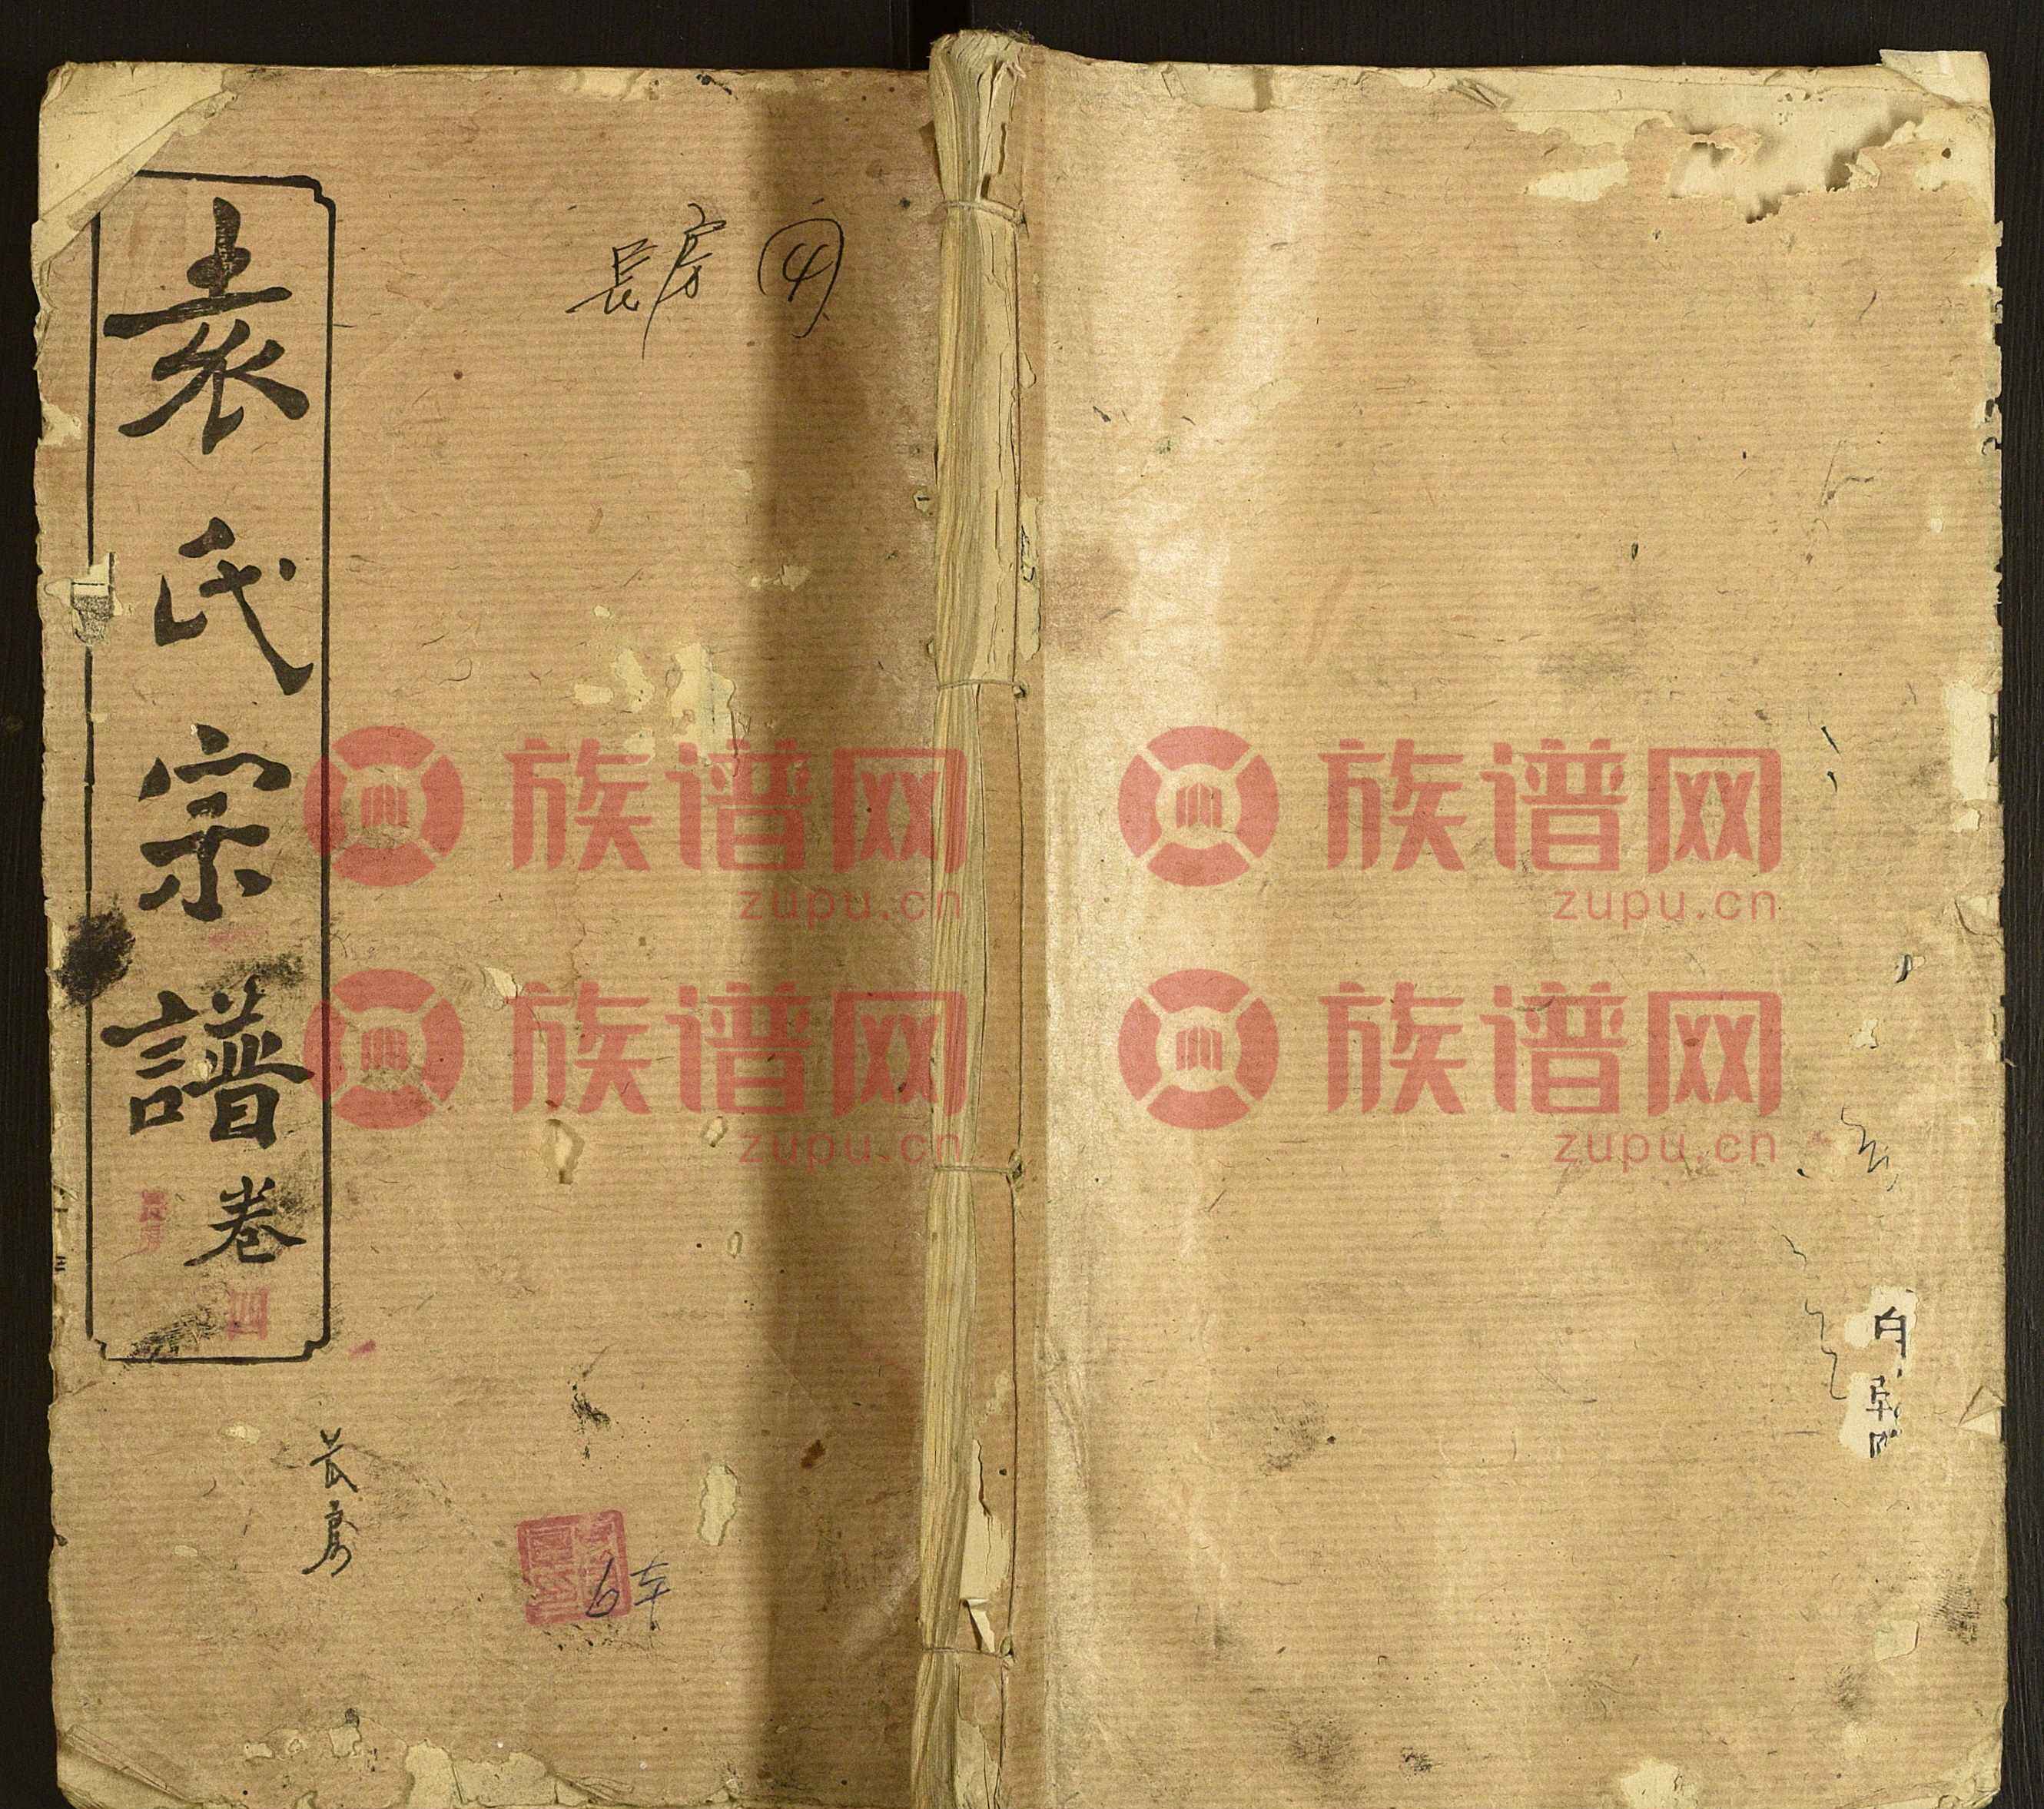 袁氏宗譜卷
四
長房
長房 ④
長房
6本
族谱网
zupu.cn
族谱网
zupu.cn
族谱网
zupu.cn
族谱网
zupu.cn